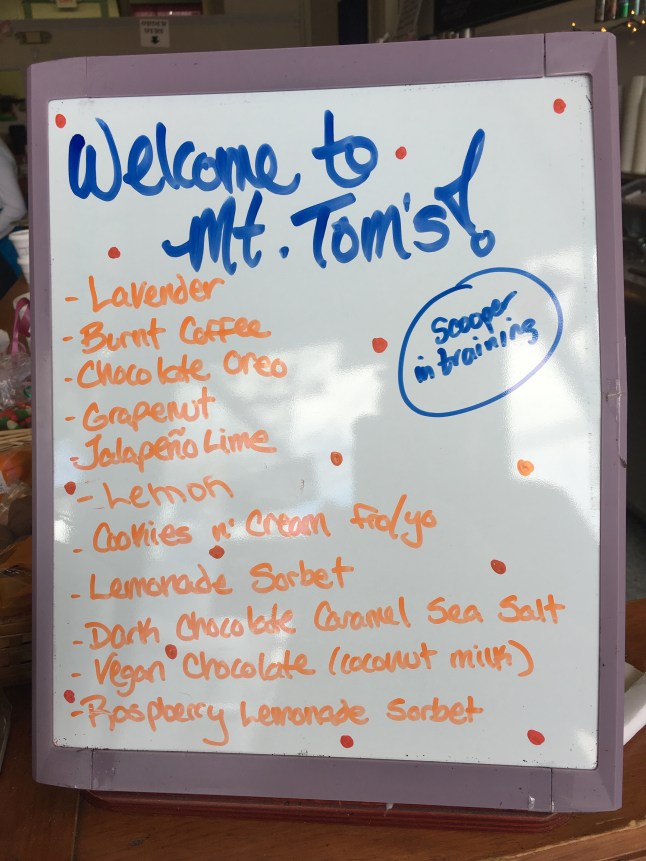 Welcome to
Mt. Tom's!
Scooper
in training
- Lavender
- Burnt Coffee
- Chocolate Oreo
- Grapenut
- Jalapeño Lime
- Lemon
- Cookies n' Cream fro/yo
- Lemonade Sorbet
- Dark Chocolate Caramel Sea Salt
- Vegan Chocolate (coconut milk)
- Raspberry Lemonade Sorbet